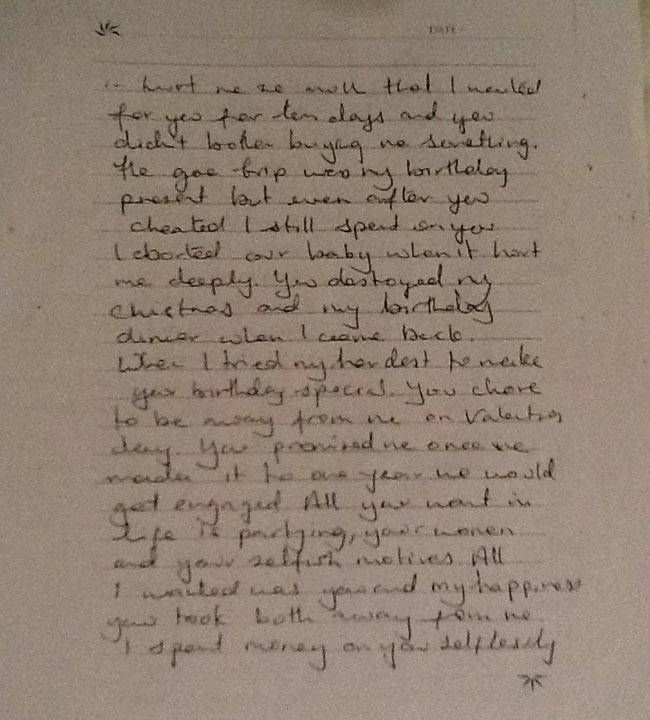 DATE
hurt me so much that I waited
for you for ten days and you
didn't bother buying me something.
The goa trip was my birthday
present but even after you
cheated I still spent on you
I aborted our baby when it hurt
me deeply. You destroyed my
Christmas and my birthday
dinner when I came back.
When I tried my hardest to make
your birthday special. You chose
to be away from me on Valentines
day. You promised me once we
made it to one year we would
get engaged All you want in
life is partying, your women
and your selfish motives All
I wanted was you and my happiness
you took both away from me
I spent money on you selflessly